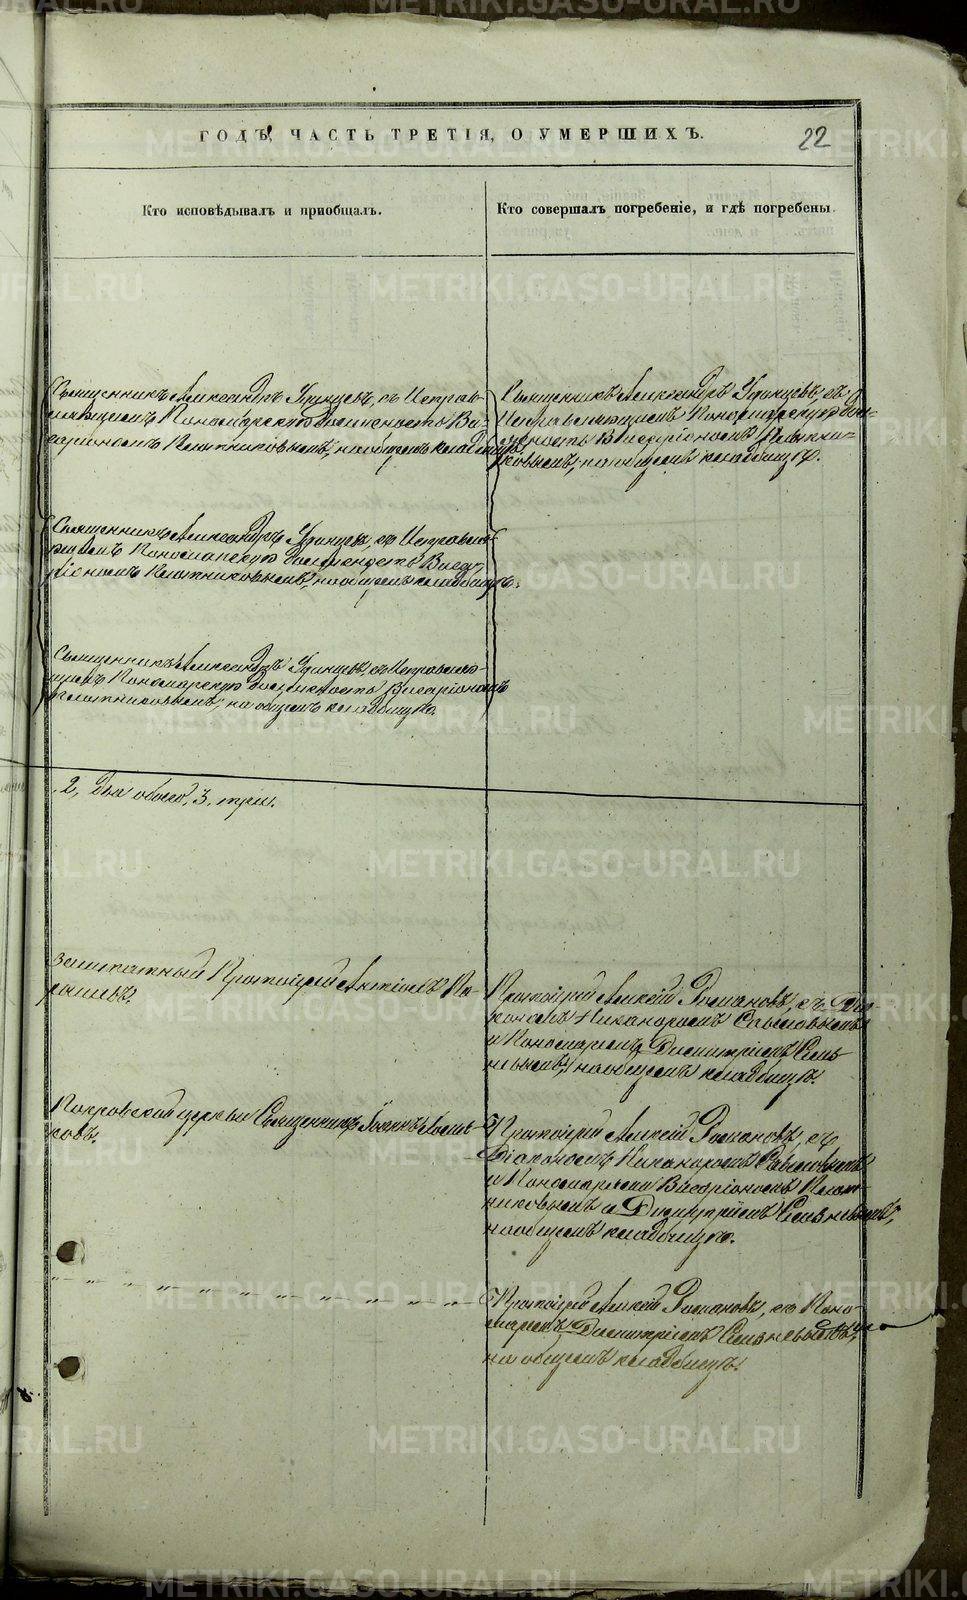 ГОДЪ, ЧАСТЬ ТРЕТІЯ, О УМЕРШИХЪ.
22
Кто исповѣдывалъ и пріобщалъ.
Кто совершалъ погребеніе, и гдѣ погребены.
Священникъ Александръ Удинцевъ, съ Исправ-
ляющимъ Пономарскую должность Ви-
саріономъ Плотниковымъ, на общемъ кладбищѣ.
Священникъ Александръ Удинцевъ, съ
Исправляющимъ Пономарскую дол-
жность Висаріономъ Плотни-
ковымъ, на общемъ кладбищѣ.
Священникъ Александръ Удинцевъ, съ Исправляю-
щимъ Пономарскую должность Виса-
ріономъ Плотниковымъ, на общемъ кладбищѣ.
Священникъ Александръ Удинцевъ, съ Исправляю-
щимъ Пономарскую должность Висаріономъ
Плотниковымъ, на общемъ кладбищѣ.
2, два обоего, 3, три.
Заштатный Протоіерей
Протоіерей Алексій Романовъ, съ Діа-
кономъ Никаноромъ
и Пономаремъ Димитріемъ
на общемъ кладбищѣ.
Покровской церкви Священникъ Іоаннъ
Протоіерей Алексій Романовъ, съ
Діакономъ Никаноромъ
и Пономарями Висаріономъ Плот-
никовымъ и Димитріемъ
на общемъ кладбищѣ.
Протоіерей Алексій Романовъ, съ Поно-
маремъ Димитріемъ
на общемъ кладбищѣ.
METRIKI.GASO-URAL.RU